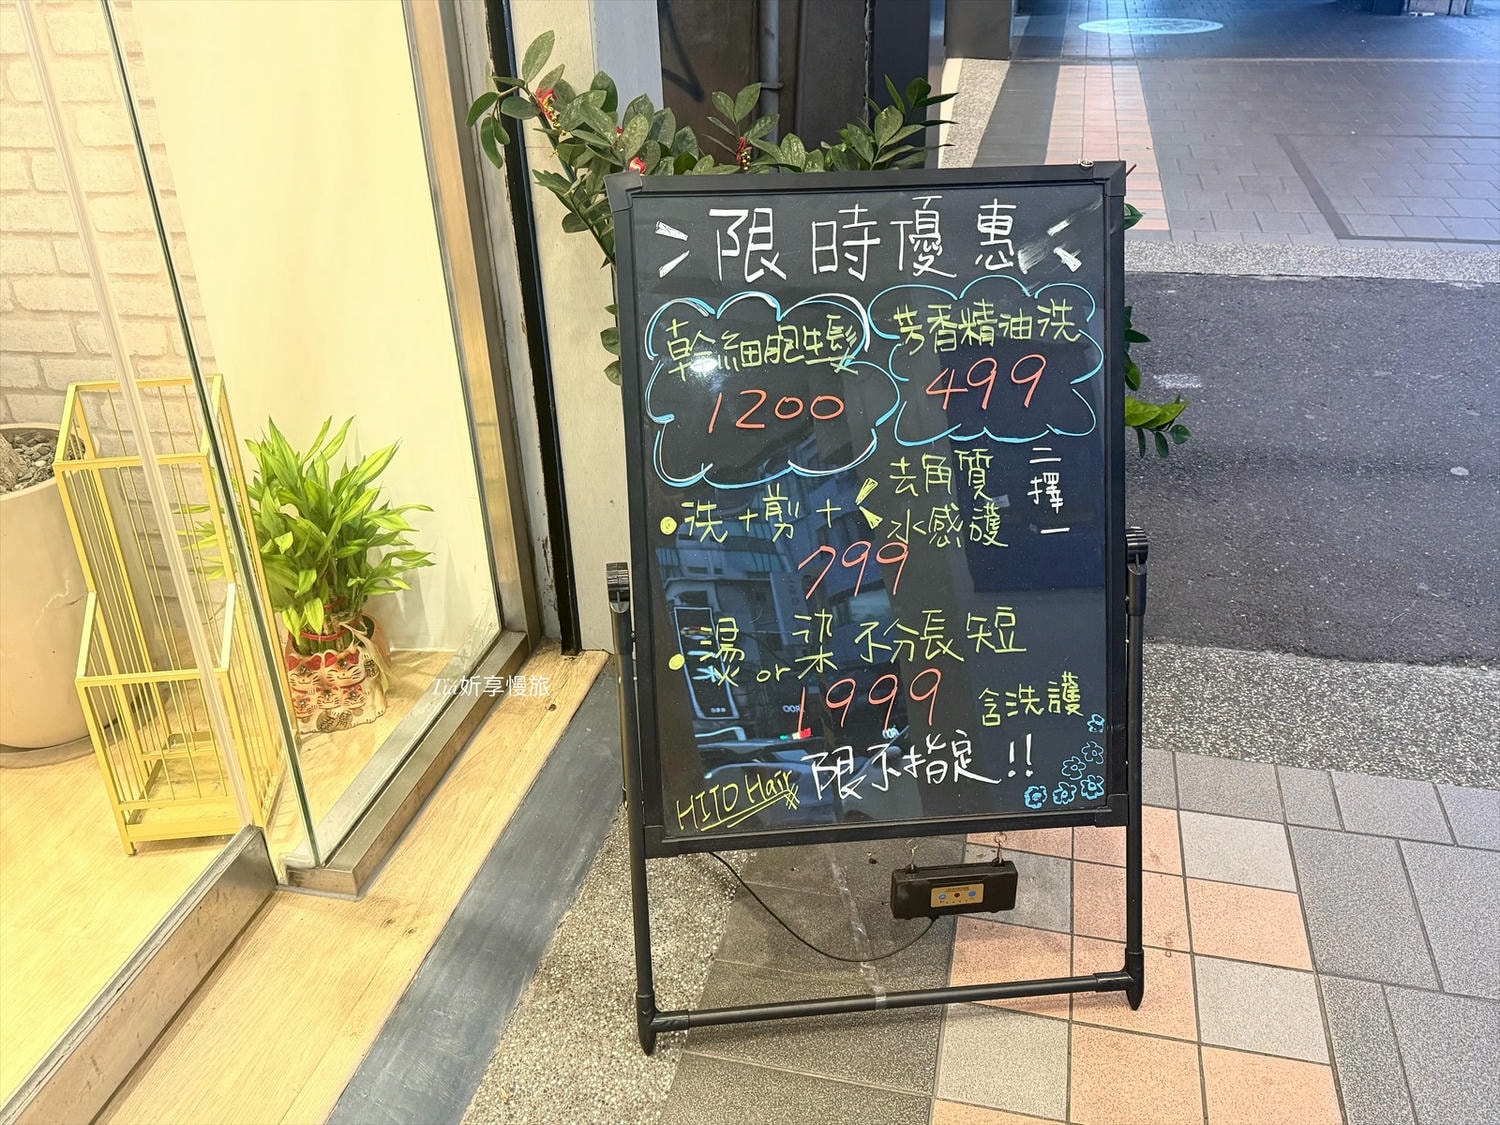 限時優惠
幹細胞生髮
1200
芳香精油洗
499
洗+剪+
去角質
水感護
二擇一
799
燙or染不分長短
1999
含洗護
限不指定!!
HITO Hair
Tiil妡享慢旅